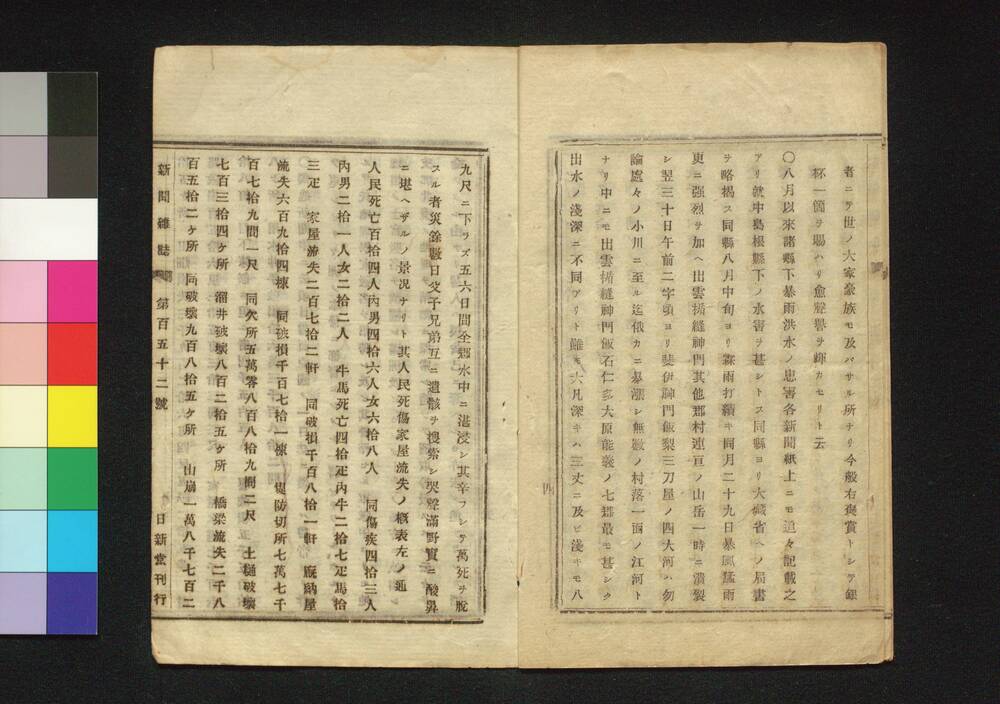 者ニテ世ノ大家豪族モ及バサル所ナリ今般右褒賞トシテ銀
杯一箇ヲ賜ハリ愈聲譽ヲ輝カセリト云
〇八月以來諸縣下暴雨洪水ノ患害各新聞紙上ニモ追々記載之
アリ就中島根縣下ノ水害ヲ甚シトス同縣ヨリ大藏省ヘノ届書
ヲ略揭ス同縣八月中旬ヨリ霖雨打續キ同月二十九日暴風猛雨
更ニ强烈ヲ加ヘ出雲楯縫神門其他郡村連亘ノ山岳一時ニ潰裂
シ翌三十日午前二字頃ヨリ斐伊神門飯梨三刀屋ノ四大河ハ勿
論處々ノ小川ニ至ル迄俄カニ暴漲シ無數ノ村落一面ノ江河ト
ナリ中ニモ出雲楯縫神門飯石仁多大原能義ノ七郡最モ甚シク
出水ノ淺深ニ不同アリト雖モ大凡深キハ三丈ニ及ビ淺キモ八
四
九尺ニ下ラズ五六日間全郷水中ニ湛浸シ其辛フシテ萬死ヲ脫
スル者災餘數日父子兄弟互ニ遺骸ヲ搜索シ哭聲滿野實ニ酸鼻
ニ堪ヘザルノ景况ナリト其人民死傷家屋流失ノ槪表左ノ通
人民死亡百拾四人內男四拾六人女六拾八人 同傷疾四拾三人
內男二拾一人女二拾二人 牛馬死亡四拾疋內牛二拾七疋馬拾
三疋 家屋流失二百七拾二軒 同破損千百八拾一軒 廐納屋
流失六百九拾四棟 同破損千百七拾一棟 堤防切所七萬七千
百七拾九間一尺 同欠所五萬零八百八拾九間二尺 土樋破壞
七百三拾四ケ所 溜井破壞八百二拾五ケ所 橋梁流失二千八
百五拾二ケ所 同破壞九百八拾五ケ所 山崩一萬八千七百二
新聞雜誌 第百五十二號 日新堂刊行